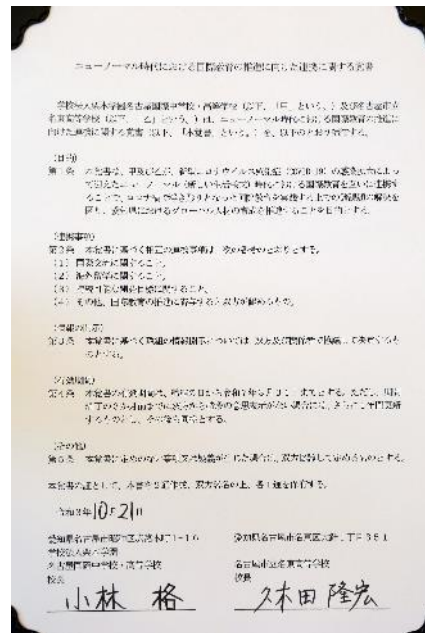 ニューノーマル時代における国際教育の推進に向けた連携に関する覚書
学校法人栗本学園名古屋国際中学校・高等学校（以下、「甲」という。）及び名古屋市立
名東高等学校（以下、「乙」という。）は、ニューノーマル時代における国際教育の推進に
向けた連携に関する覚書（以下、「本覚書」という。）を、以下のとおり締結する。
（目的）
第1条 本覚書は、甲及び乙が、新型コロナウイルス感染症（COVID-19）の感染拡大によっ
て迎えたニューノーマル（新しい生活様式）時代における国際教育を互いに連携す
ることで、コロナ禍で浮き彫りとなった国際教育を実施する上での諸課題の解決を
図り、愛知県におけるグローバル人材の育成を推進することを目的とする。
（連携事項）
第2条 本覚書に基づく相互の連携事項は、次の各号のとおりとする。
（1）国際交流に関すること。
（2）海外留学に関すること。
（3）持続可能な開発目標に関すること。
（4）その他、国際教育の推進に寄与すると双方が認めるもの。
（情報の開示）
第3条 本覚書に基づく取組の情報開示については、双方及び関係者で協議して決定するも
のとする。
（有効期間）
第4条 本覚書の有効期間は、締結の日から令和
（その他）
第5条 本覚書に定めのない事項又は疑義が生じた場合は、双方協議して定めるものとする。
本覚書の証として、本書を2通作成、双方署名の上、各1通を保有する。
令和3年10月21日
愛知県名古屋市昭和区広路本町1-16
学校法人栗本学園
名古屋国際中学校・高等学校
校長
小林 格
愛知県名古屋市名東区
名古屋市立名東高等学校
校長
久本田 隆宏